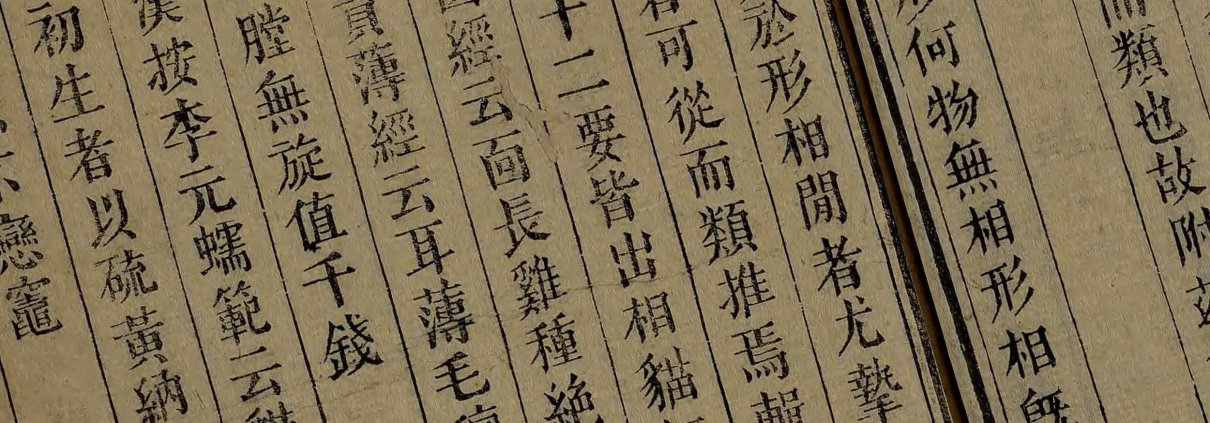 而類也故附
何物無相形相既
於形相間者尤摯
可從而類推焉輯
十二要皆出相貓
經云面長雞種絶
薄經云耳薄毛
膛無旋值千錢
漢按李元蠕範云
初生者以硫黃納
戀竈